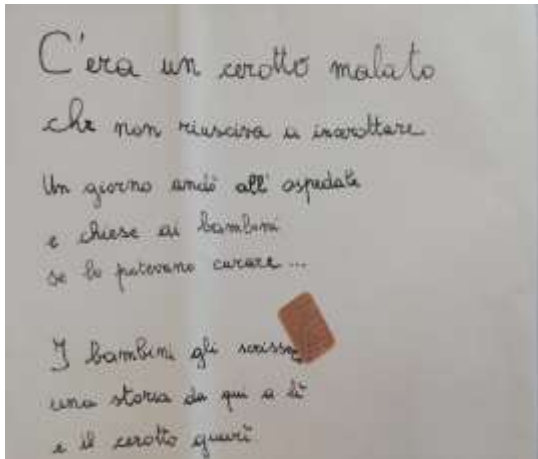 C'era un cerotto malato
che non riusciva a incerottare
Un giorno andò all' ospedale
e chiese ai bambini
se lo potevano curare ...
I bambini gli scrissero
una storia da qui a lì
e il cerotto guarì